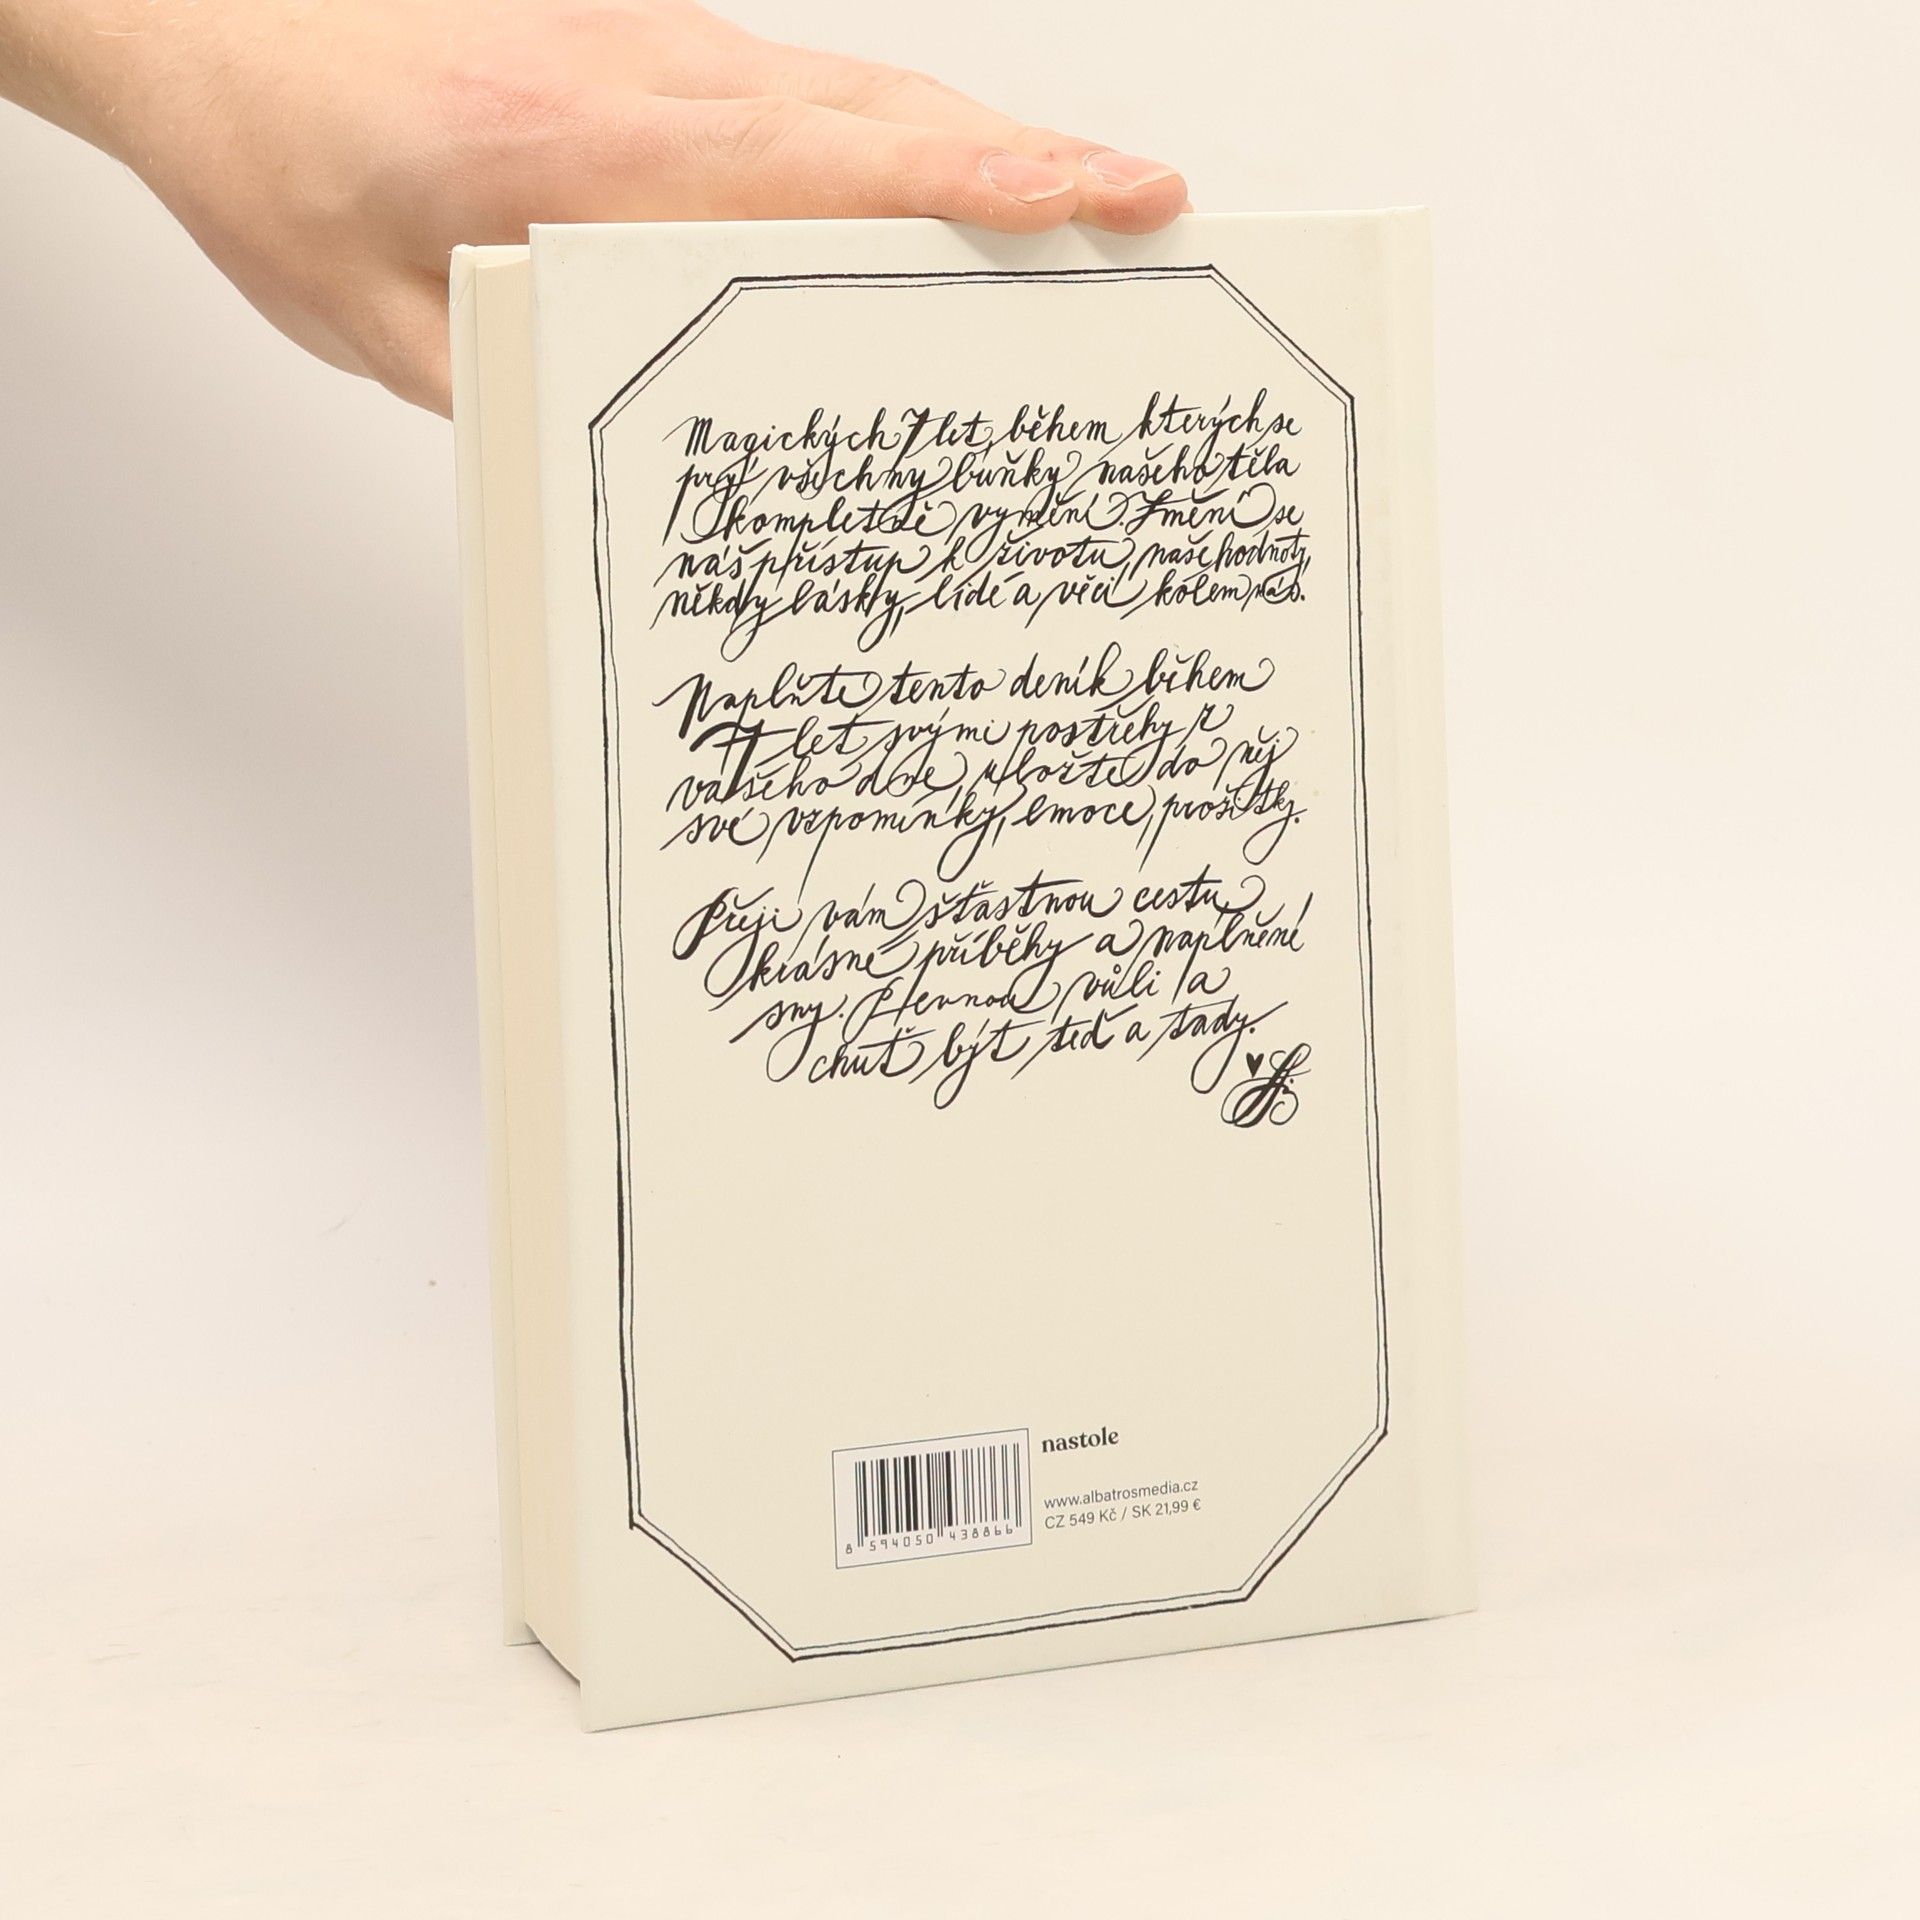 Magických 7 let, během kterých se
prý všechny buňky našeho těla
kompletně vymění. Změní se
náš přístup k životu, naše hodnoty,
někdy lásky, lidé a věci kolem nás.
Naplňte tento deník během
7 let svými postřehy z
vašeho dne, uložte do něj
své vzpomínky, emoce, prožitky.
Přeji vám šťastnou cestu,
krásné příběhy a naplnění
sny. Pevnou vůli a
chuť být teď a tady.
nastole
www.albatrosmedia.cz
CZ 549 Kč / SK 21,99 €
8 594050 438866